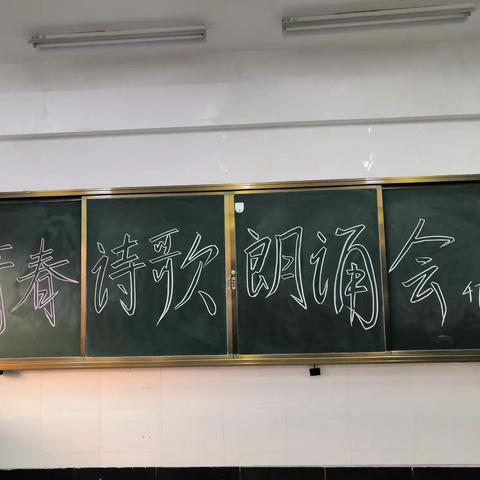 青春诗歌朗诵会